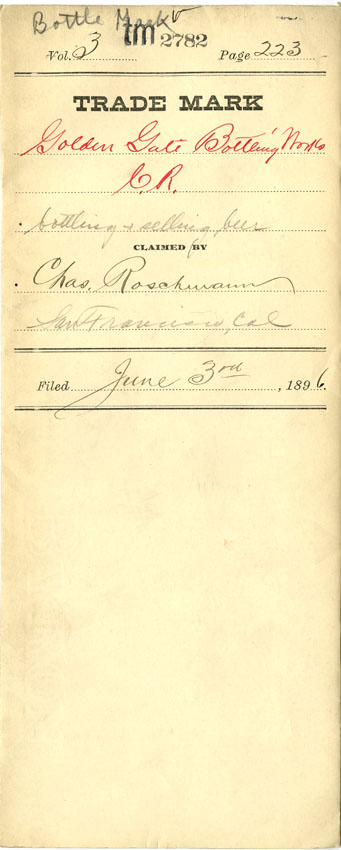 Bottle Mark
tm 2782
Vol. 3 Page 223
TRADE MARK
Golden Gate Bottling Works
C.R.
bottling & selling beer
CLAIMED BY
Chas. Roschmann
San Francisco, Cal
Filed June 3rd, 1896.